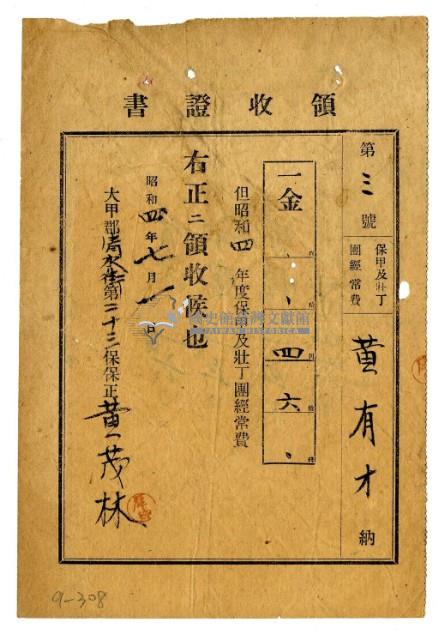 領收證書
第三號 保甲及壯丁團經常費 黃有才 納
一金 、、四六、
但昭和四年度保甲及壯丁團經常費
右正ニ領收候也
昭和四年七月一日
大甲郡清水街第二十三保保正 黃茂林
國史館臺灣文獻館
TAIWAN HISTORICA
9-308